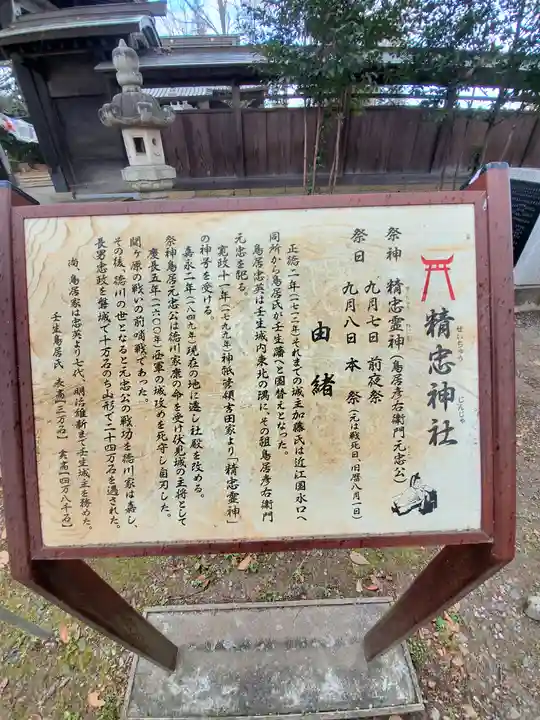 精忠神社
せいちゅう じんじゃ
祭神 精忠霊神(鳥居彦右衛門元忠公)
祭日 九月七日 前夜祭
九月八日 本 祭(元は戦死日、旧暦八月一日)
由緒
正徳二年(一七一二年)それまでの城主加藤氏は近江国水口へ
同所から鳥居氏が壬生藩へと国替えとなった。
鳥居忠英は壬生城内東北の隅に、その祖鳥居彦右衛門
元忠を祀る。
寛政十一年(一七九九年)神祇管領吉田家より「精忠霊神」
の神号を受ける
嘉永二年(一八四九年)現在の地に遷し社殿を改める。
祭神鳥居元忠公は徳川家康の命を受け伏見城の主将として
慶長五年(一六〇〇年)西軍の城攻めを死守し自刃した。
関ヶ原の戦いの前哨戦であった。
その後、徳川の世となると元忠公の戦功を徳川家は嘉し、
長男忠政を磐城で十万石のち山形で二十四万石を遇された。
尚 鳥居家は忠英より七代、明治維新まで壬生城主を務めた。
壬生鳥居氏 表高[三万石] 実高[四万八千石]